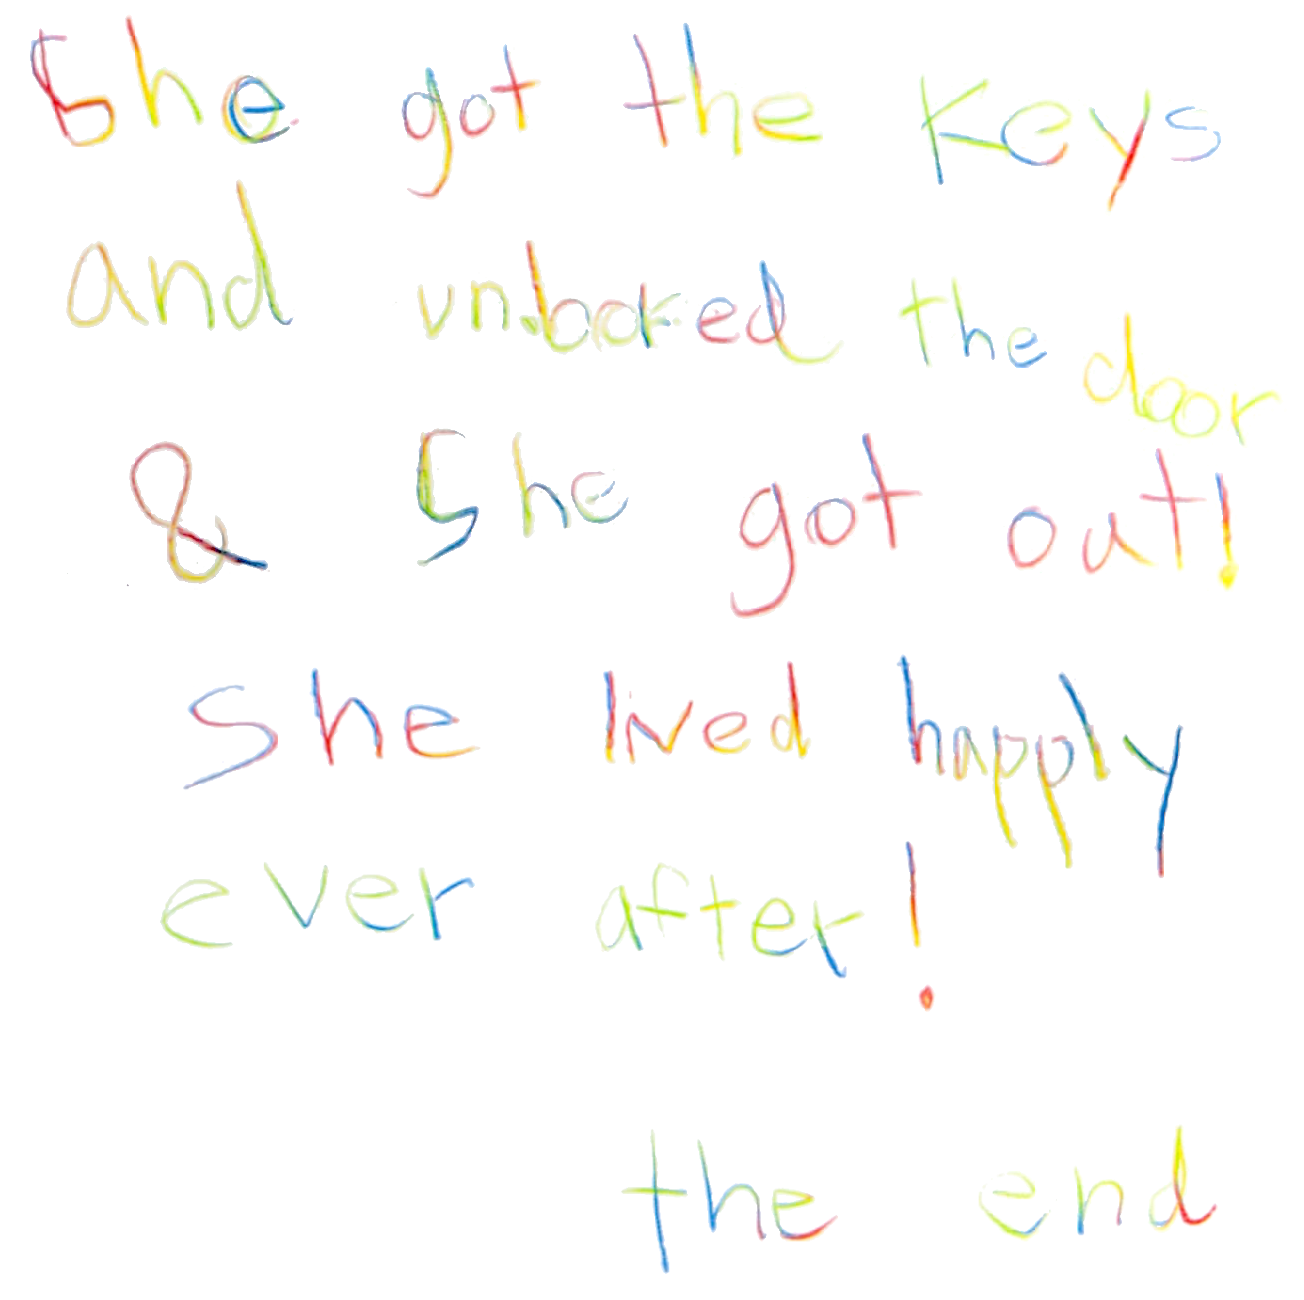 She got the keys
and unlocked the door
& She got out!
She lived happly
ever after!
the end